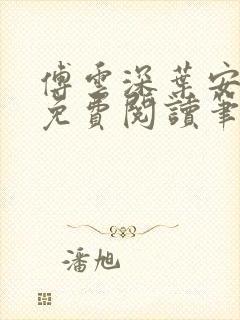 傅雲深葉安
免費閱讀筆
潘旭